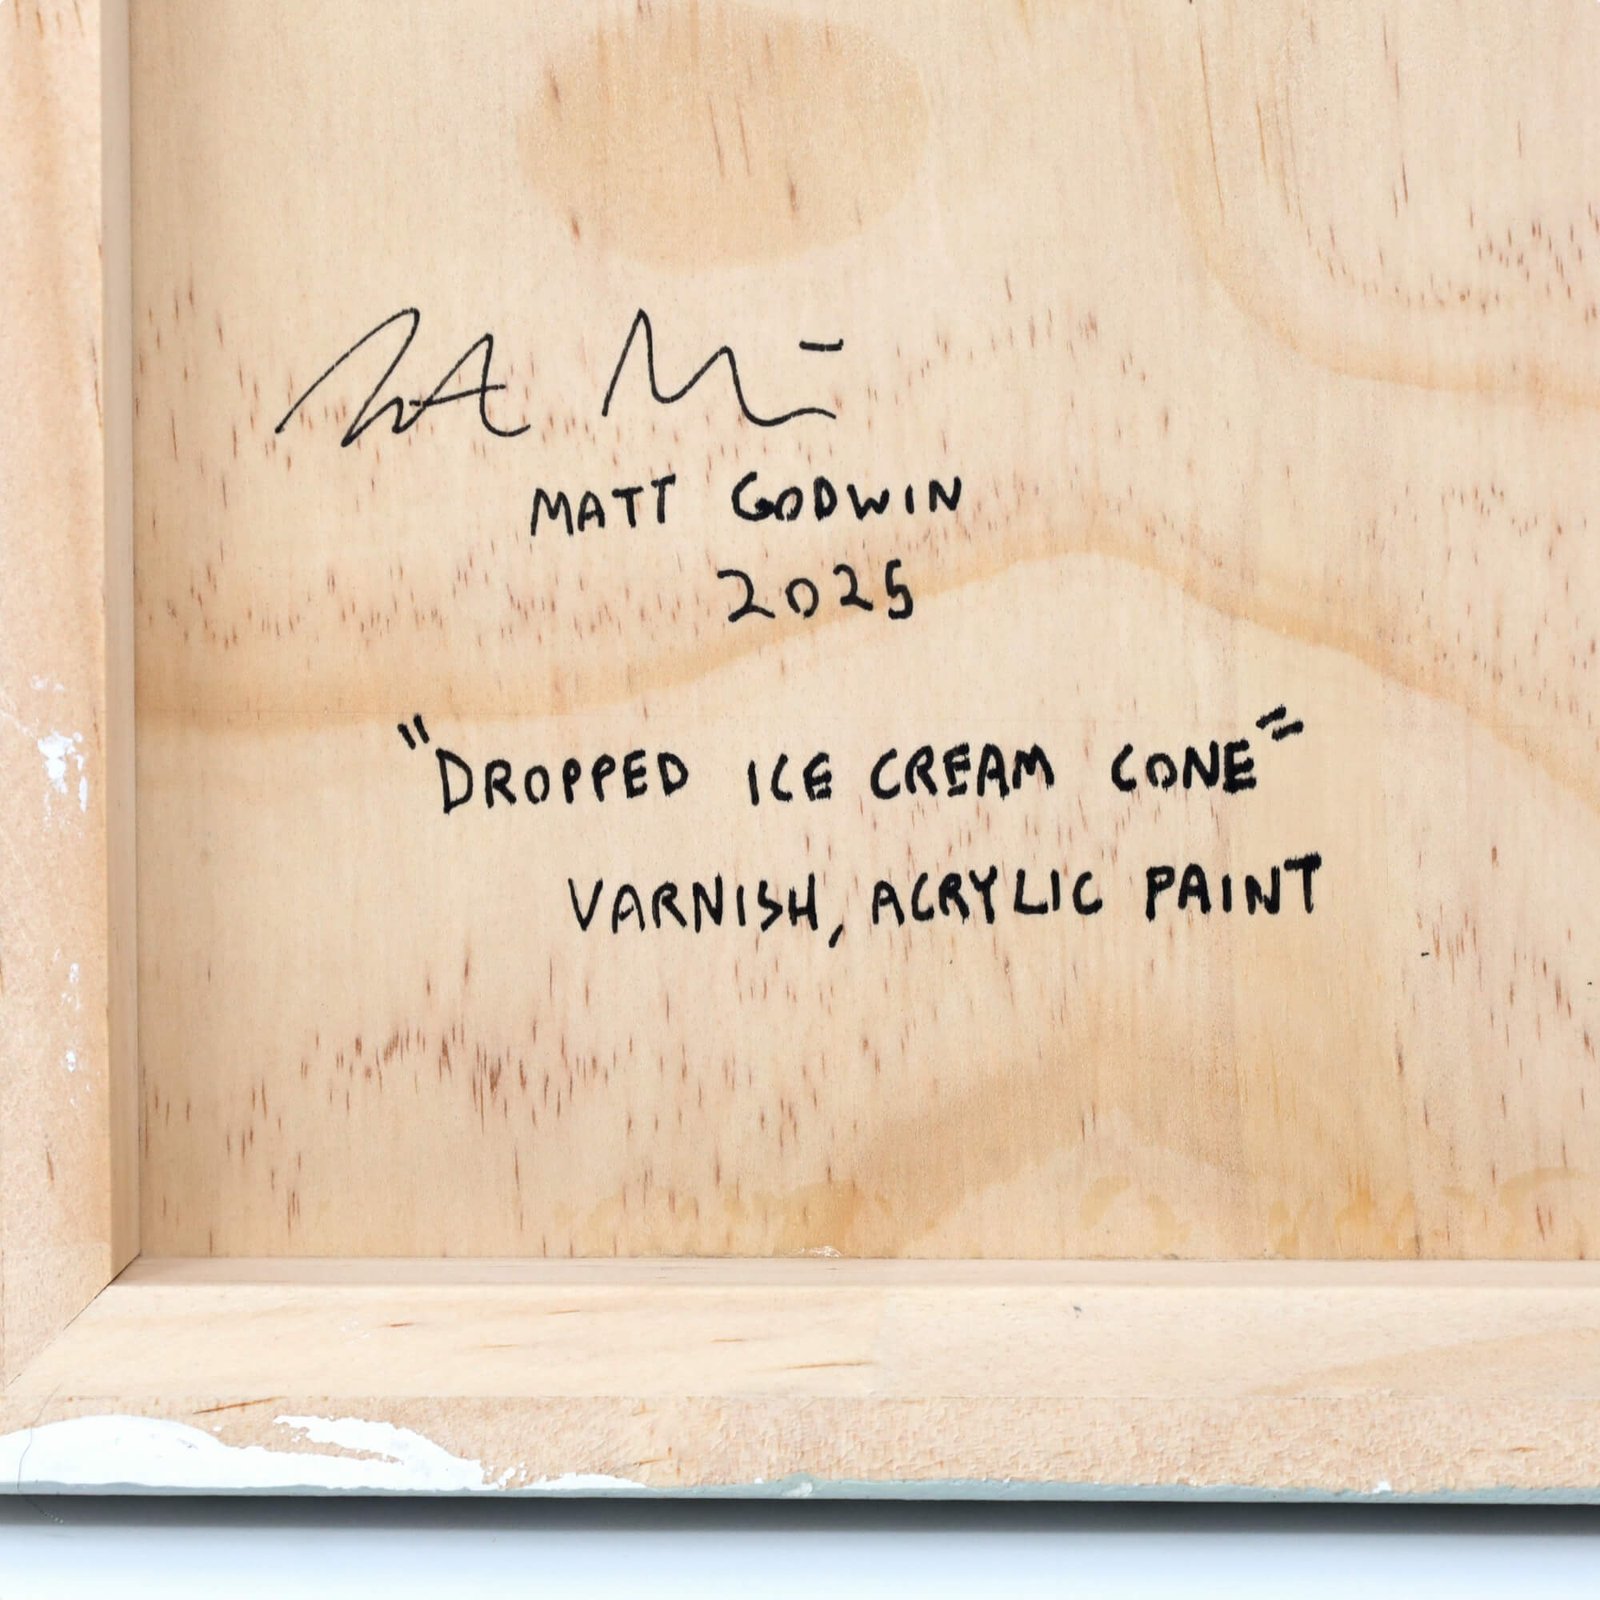 MATT GODWIN
2025
"DROPPED ICE CREAM CONE"
VARNISH, ACRYLIC PAINT